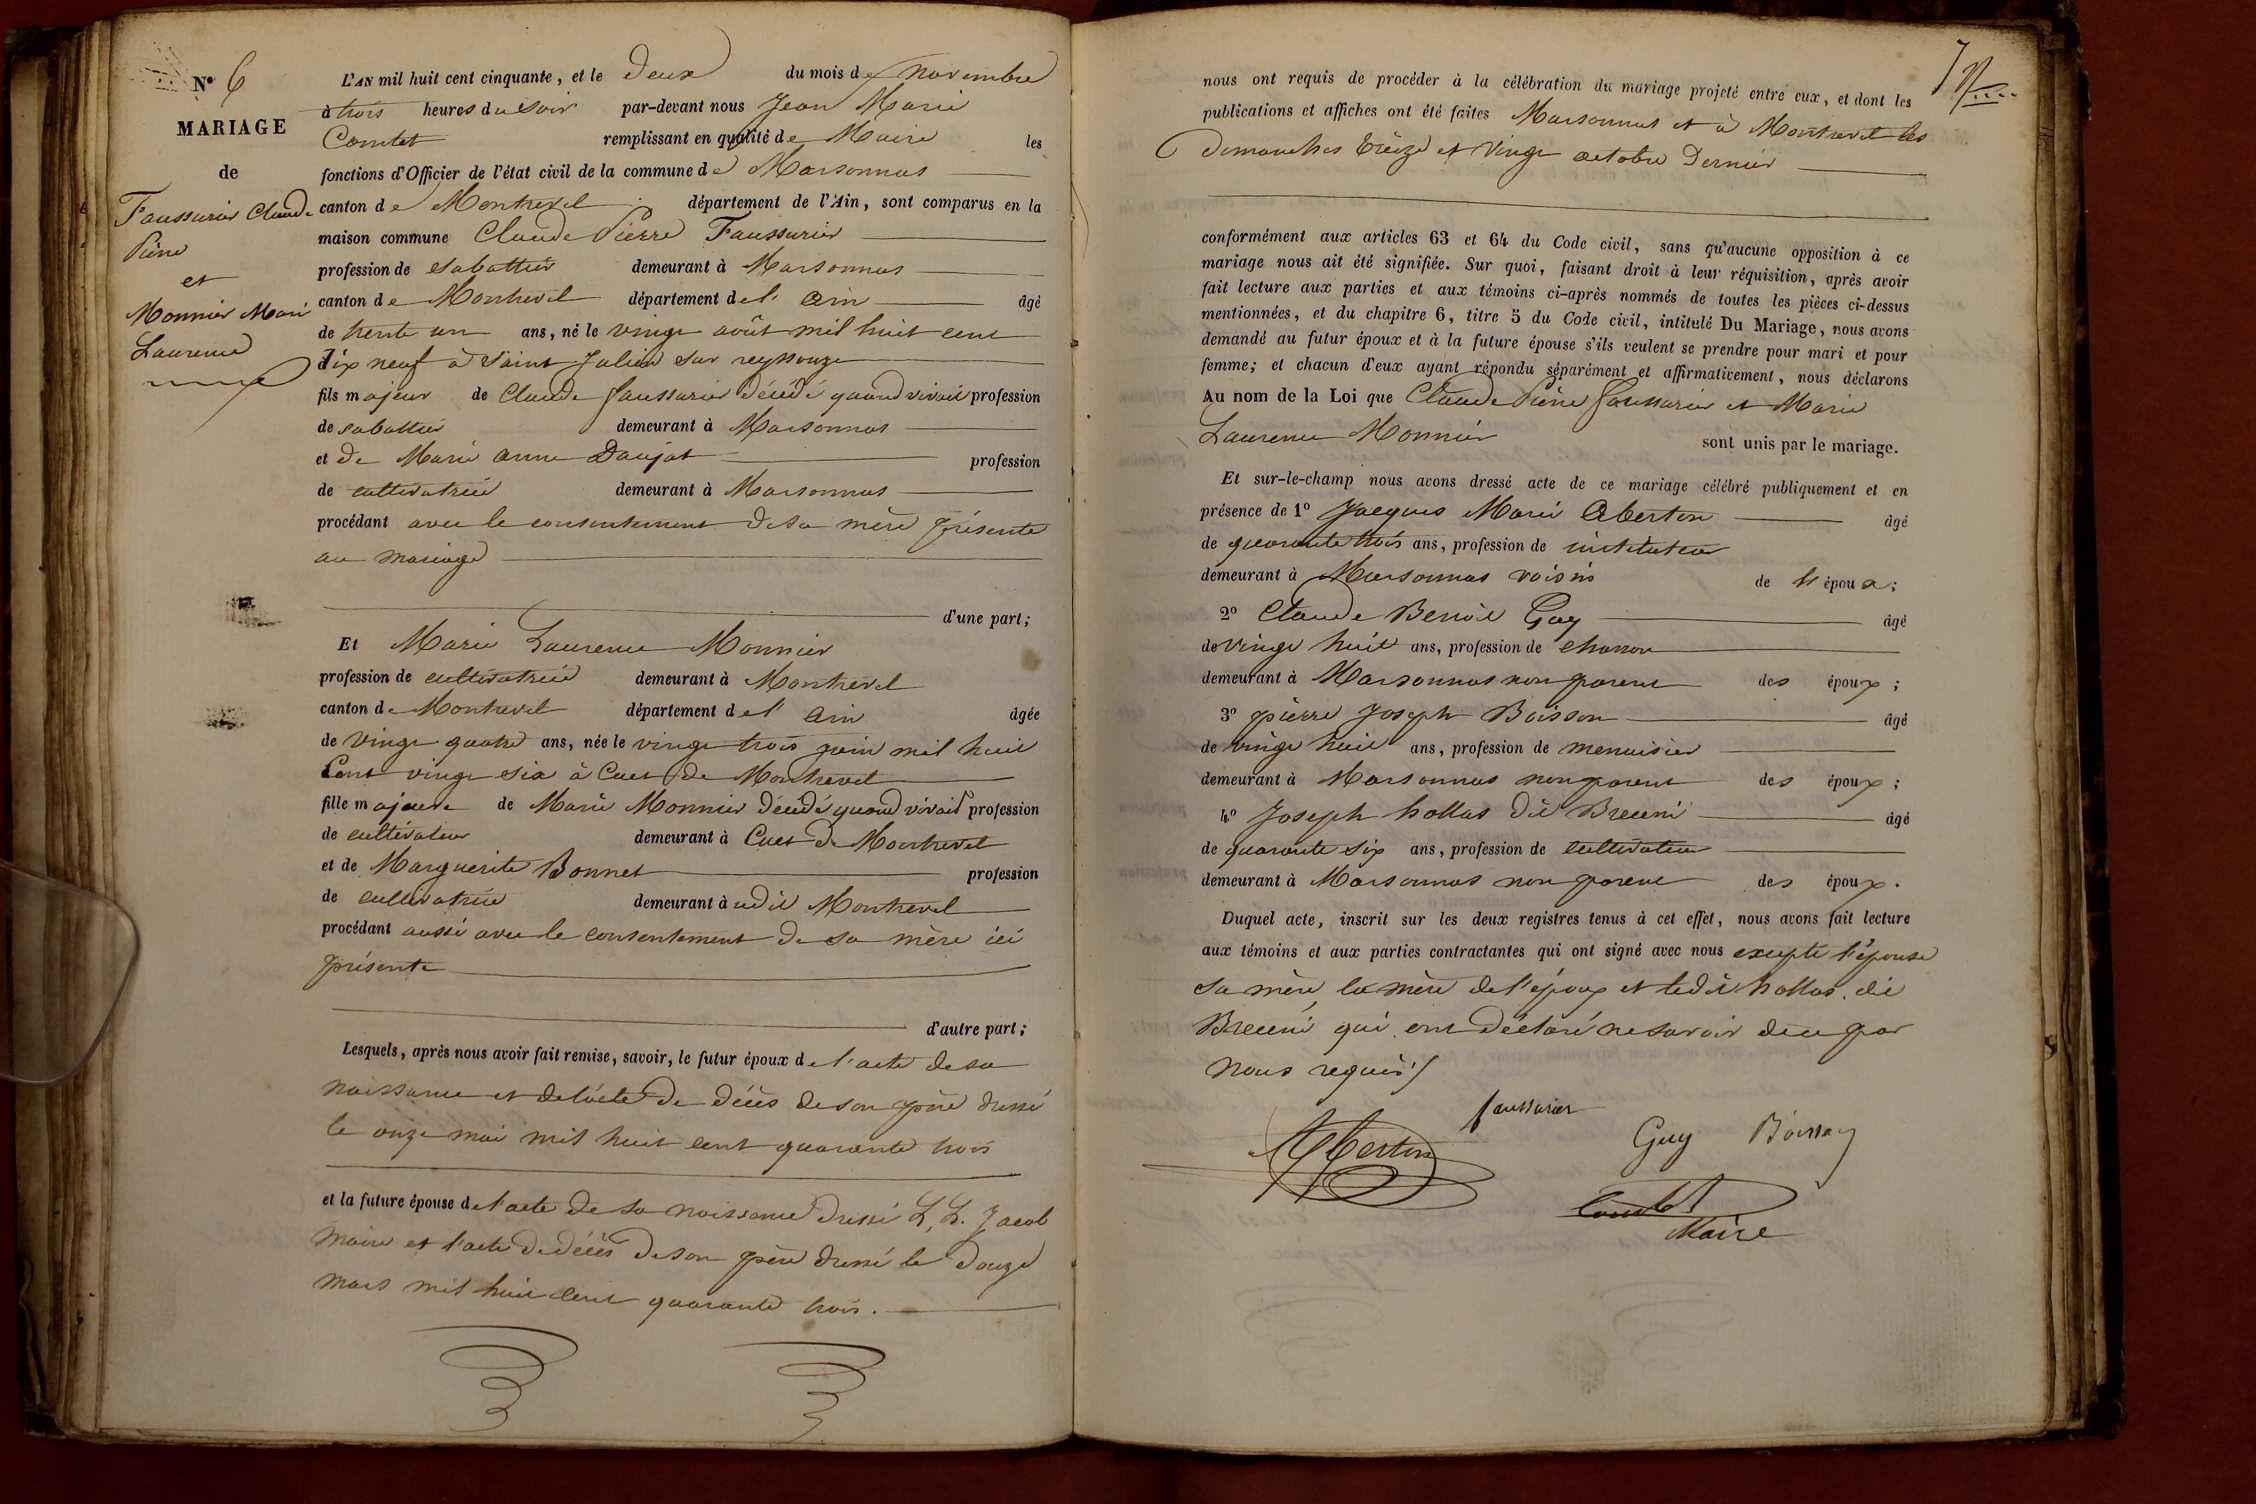 N° 6
MARIAGE
de
Faussurier Claude
Pierre
et
Monnier Marie
Laurence
L'AN mil huit cent cinquante, et le deux du mois de novembre
à trois heures du soir par-devant nous Jean Marie
Comtet remplissant en qualité de Maire les
fonctions d'Officier de l'état civil de la commune de Marsonnas
canton de Montrevel département de l'Ain, sont comparus en la
maison commune Claude Pierre Faussurier
profession de sabottier demeurant à Marsonnas
canton de Montrevel département de l' ain âgé
de trente un ans, né le vingt août mil huit cent
dix neuf à Saint Julien sur reyssouze
fils majeur de Claude faussurier décédé quand vivait profession
de sabottier demeurant à Marsonnas
et de Marie anne Daujat profession
de cultivatrice demeurant à Marsonnas
procédant avec le consentement de sa mère présente
au mariage
d'une part;
Et Marie Laurence Monnier
profession de cultivatrice demeurant à Montrevel
canton de Montrevel département de l' ain âgée
de vingt quatre ans, née le vingt trois juin mil huit
Cent vingt six à Cuet de Montrevel
fille majeure de Marie Monnier décédé quand vivait profession
de cultivateur demeurant à Cuet de Montrevel
et de Marguerite Bonnet profession
de cultivatrice demeurant à udit Montrevel
procédant aussi avec le consentement de sa mère ici
présente
d'autre part;
Lesquels, après nous avoir fait remise, savoir, le futur époux de l'acte de sa
naissance et de l'acte de décès de son père dressé
le onze mai mil huit cent quarante trois
et la future épouse de l'acte de sa naissance dressé L, L. Jacob
Maire et l'acte de décès de son père dressé le douze
mars mil huit cent quarante trois.
nous ont requis de procéder à la célébration du mariage projeté entre eux, et dont les
publications et affiches ont été faites Marsonnas et à Montrevel les
Dimanches treize et vingt octobre Dernier
conformément aux articles 63 et 64 du Code civil, sans qu'aucune opposition à ce
mariage nous ait été signifiée. Sur quoi, faisant droit à leur réquisition, après avoir
fait lecture aux parties et aux témoins ci-après nommés de toutes les pièces ci-dessus
mentionnées, et du chapitre 6, titre 5 du Code civil, intitulé Du Mariage, nous avons
demandé au futur époux et à la future épouse s'ils veulent se prendre pour mari et pour
femme; et chacun d'eux ayant répondu séparément et affirmativement, nous déclarons
Au nom de la Loi que Claude Pierre faussurier et Marie
Laurence Monnier sont unis par le mariage.
Et sur-le-champ nous avons dressé acte de ce mariage célébré publiquement et en
présence de 1° Jacques Marie Aberton âgé
de quarante trois ans, profession de instituteur
demeurant à Marsonnas voisin de l'époux;
2° Claude Benoit Guy âgé
de vingt huit ans, profession de charron
demeurant à Marsonnas non parent des époux;
3° pierre Joseph Boisson âgé
de vingt huit ans, profession de menuisier
demeurant à Marsonnas non parent des époux;
4° Joseph hollas dit âgé
de quarante six ans, profession de cultivateur
demeurant à Marsonnas non parent des époux.
Duquel acte, inscrit sur les deux registres tenus à cet effet, nous avons fait lecture
aux témoins et aux parties contractantes qui ont signé avec nous excepté l'épouse
sa mère, la mère de l'époux et ledit hollas dit
qui ont déclaré ne savoir de ce par
nous requis
faussurier
Aberton
Guy Boisson
Comtet
Maire